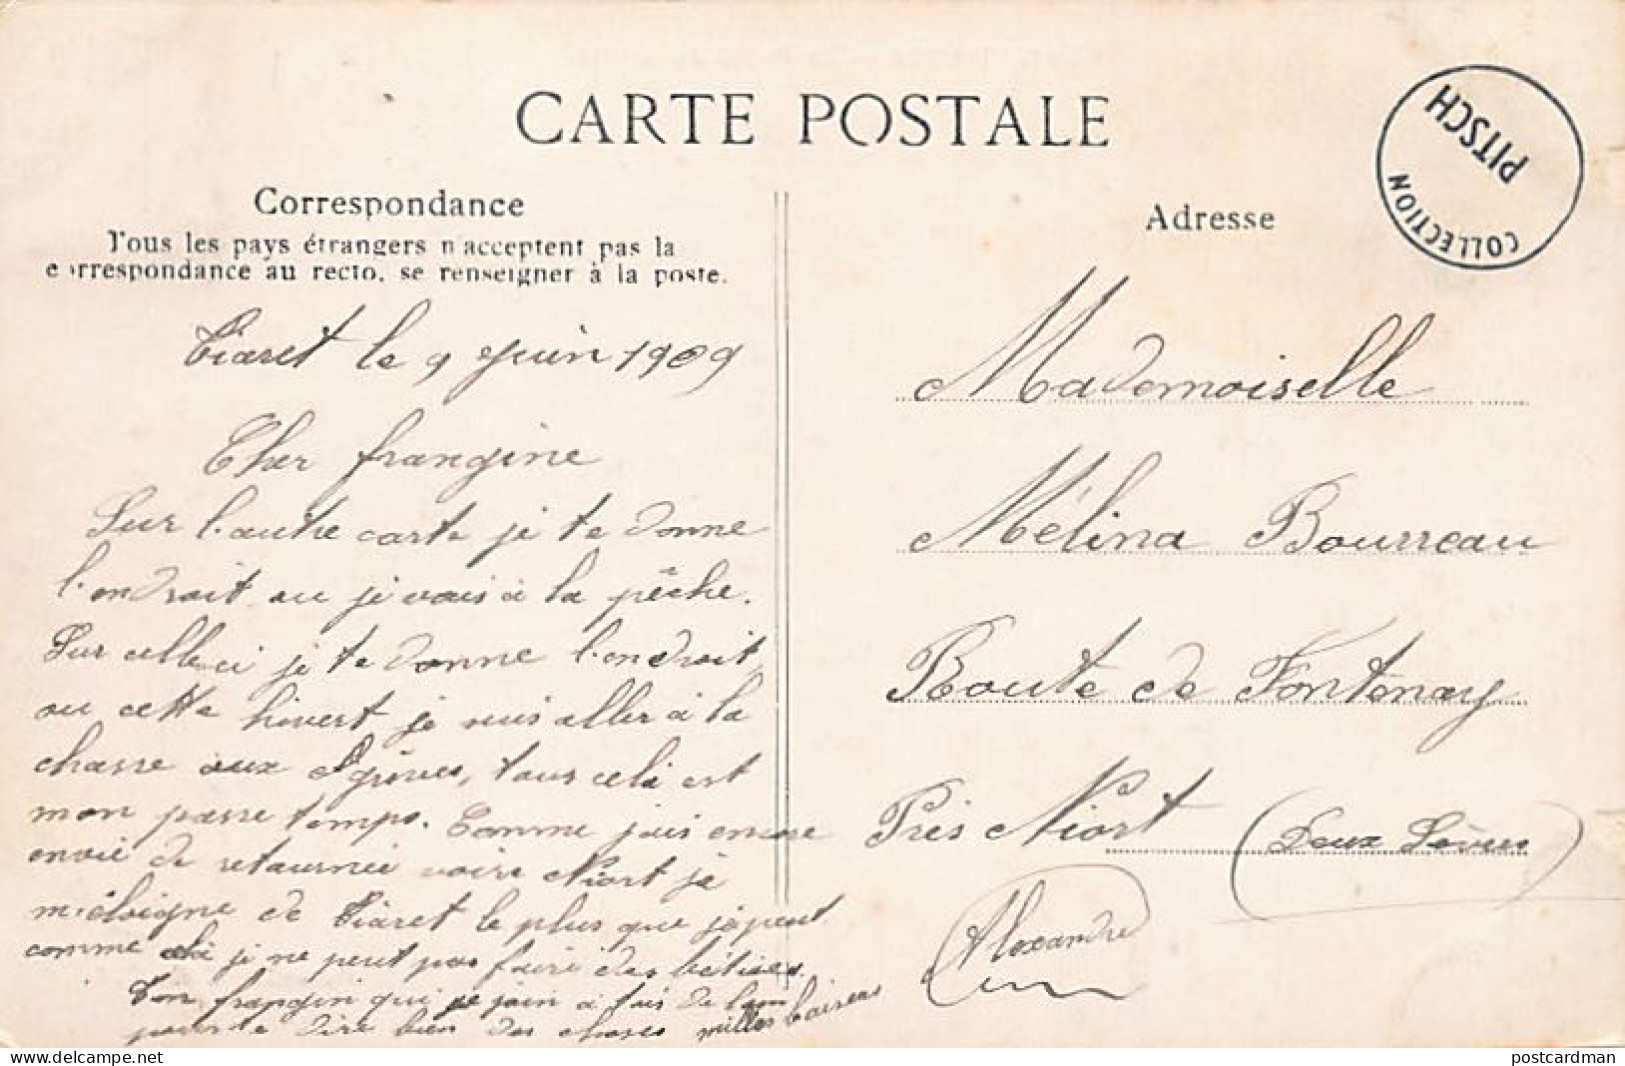 CARTE POSTALE
COLLECTION
PITSCH
Correspondance
Tous les pays étrangers n'acceptent pas la
correspondance au recto, se renseigner à la poste.
Tiaret le 9 Juin 1909
Cher frangine
Sur l'autre carte je te donne
l'endroit ou je vais à la pêche.
Sur celle ci je te donne l'endroit
ou cette hivert je vais aller à la
chasse aux grives, tous celà est
mon passe temps. Comme jais encore
envie de retournée voire Niort je
m'éloigne de Tiaret le plus que je peut
comme celà je ne peut pas faire des bétises.
Ton frangin qui se join a toi de
pour te dire bien des choses milles baisers
Adresse
Mademoiselle
Mélina Bourreau
Route de Fontenay
Près Niort (Deux Sèvres)
Alexandre
postcardman
delcampe.net